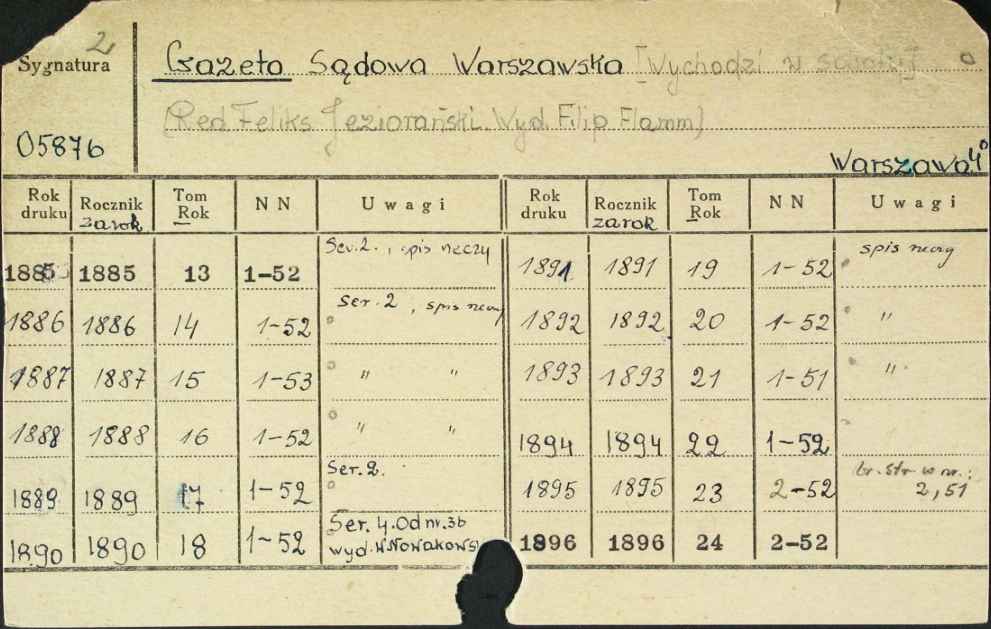 2
Sygnatura
05876
Gazeta Sądowa Warszawska [Wychodzi w soboty]
[Red. Feliks Jeziorański. Wyd. Filip Flamm]
Warszawa 4°
Rok druku Rocznik za rok Tom Rok NN Uwagi Rok druku Rocznik za rok Tom Rok NN Uwagi
1885 1885 13 1-52 Ser. 2. , spis rzeczy 1891 1891 19 1-52 spis rzeczy
1886 1886 14 1-52 Ser. 2 , spis rzeczy 1892 1892 20 1-52 "
1887 1887 15 1-53 " " 1893 1893 21 1-51 "
1888 1888 16 1-52 " " 1894 1894 22 1-52
1889 1889 17 1-52 Ser. 2. 1895 1895 23 2-52 br. str w nr.: 2,51
1890 1890 18 1-52 Ser. 4. Od nr. 36 wyd. W. Nowakows 1896 1896 24 2-52